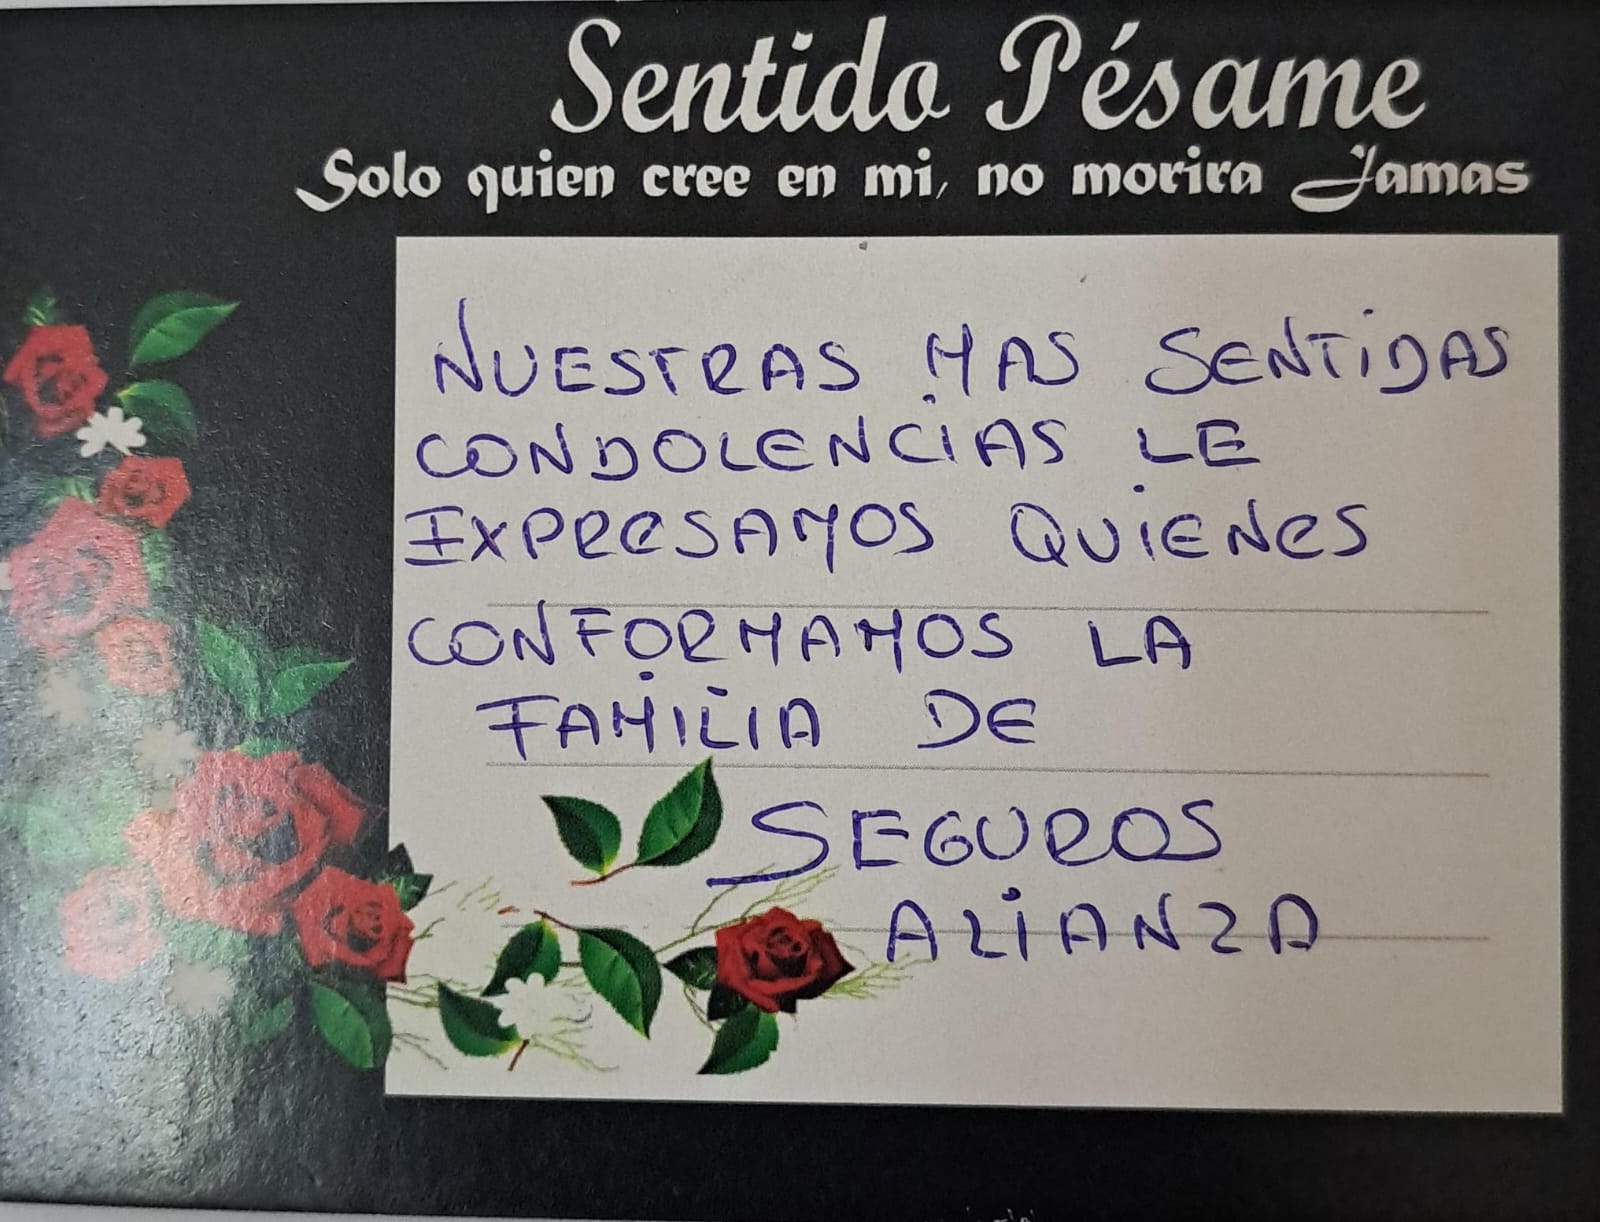 Sentido Pésame
Solo quien cree en mi, no morira Jamas
NUESTRAS MAS SENTIDAS
CONDOLENCIAS LE
EXPRESAMOS QUIENES
CONFORMAMOS LA
FAMILIA DE
SEGUROS
ALIANZA